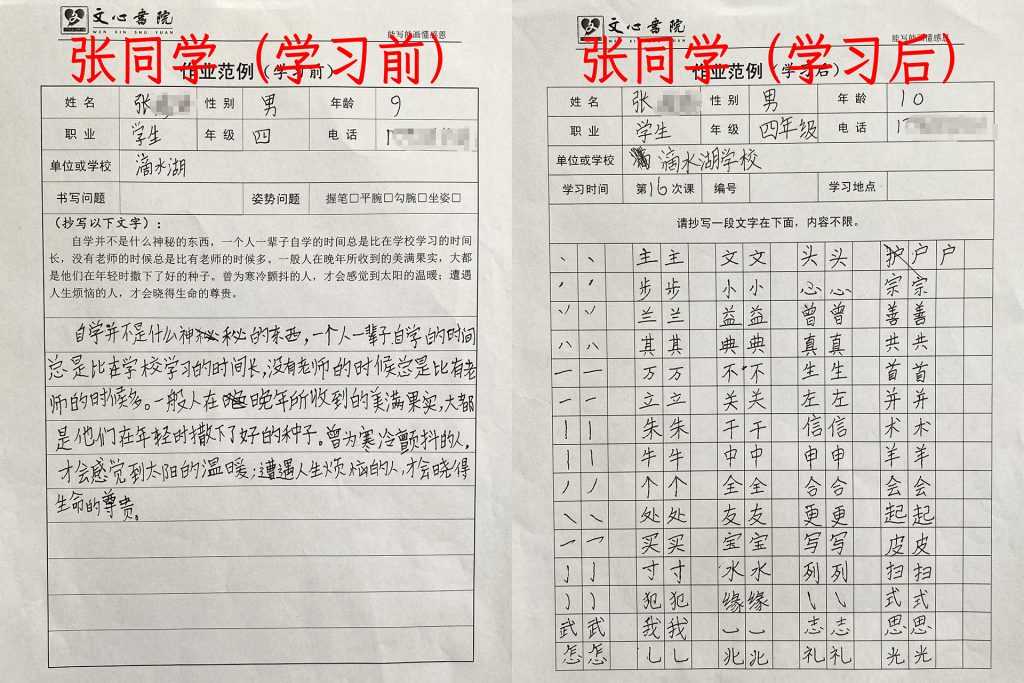 文心書院
WEN XIN SHU YUAN
能写能画懂感恩
张同学（学习前）
作业范例（学习前）
姓名 张 性别 男 年龄 9
职业 学生 年级 四 电话 1
单位或学校 滴水湖
书写问题 姿势问题 握笔□平腕□勾腕□坐姿□
（抄写以下文字）：
自学并不是什么神秘的东西，一个人一辈子自学的时间总是比在学校学习的时间
长，没有老师的时候总是比有老师的时候多。一般人在晚年所收到的美满果实，大都
是他们在年轻时撒下了好的种子。曾为寒冷颤抖的人，才会感觉到太阳的温暖；遭遇
人生烦恼的人，才会晓得生命的尊贵。
自学并不是什么神秘的东西，一个人一辈子自学的时间
总是比在学校学习的时间长，没有老师的时候总是比有老
师的时候多。一般人在晚年所收到的美满果实，大都
是他们在年轻时撒下了好的种子。曾为寒冷颤抖的人，
才会感觉到太阳的温暖；遭遇人生烦恼的人，才会晓得
生命的尊贵。
文心書院
WEN XIN SHU YUAN
能写能画懂感恩
张同学（学习后）
作业范例（学习后）
姓名 张 性别 男 年龄 10
职业 学生 年级 四年级 电话 1
单位或学校 滴水湖学校
学习时间 第16次课 编号 学习地点
请抄写一段文字在下面，内容不限。
丶 丶 主 主 文 文 头 头 护 户 户
步 步 小 小 心 心 宗 宗
兰 兰 益 益 曾 曾 善 善
其 其 典 典 真 真 共 共
一 一 万 万 不 不 生 生 首 首
一 一 立 立 关 关 左 左 并 并
丨 丨 朱 朱 干 干 信 信 术 术
丨 丨 牛 牛 中 中 申 申 羊 羊
丿 丿 个 个 全 全 合 合 会 会
㇏ ㇏ 处 处 友 友 更 更 起 起
乛 乛 买 买 宝 宝 写 写 皮 皮
亅 亅 寸 寸 水 水 列 列 扫 扫
犯 犯 缘 缘 ㇂ ㇂ 式 式
武 武 我 我 ㇃ ㇃ 志 志 思 思
怎 怎 乚 乚 兆 兆 礼 礼 光 光